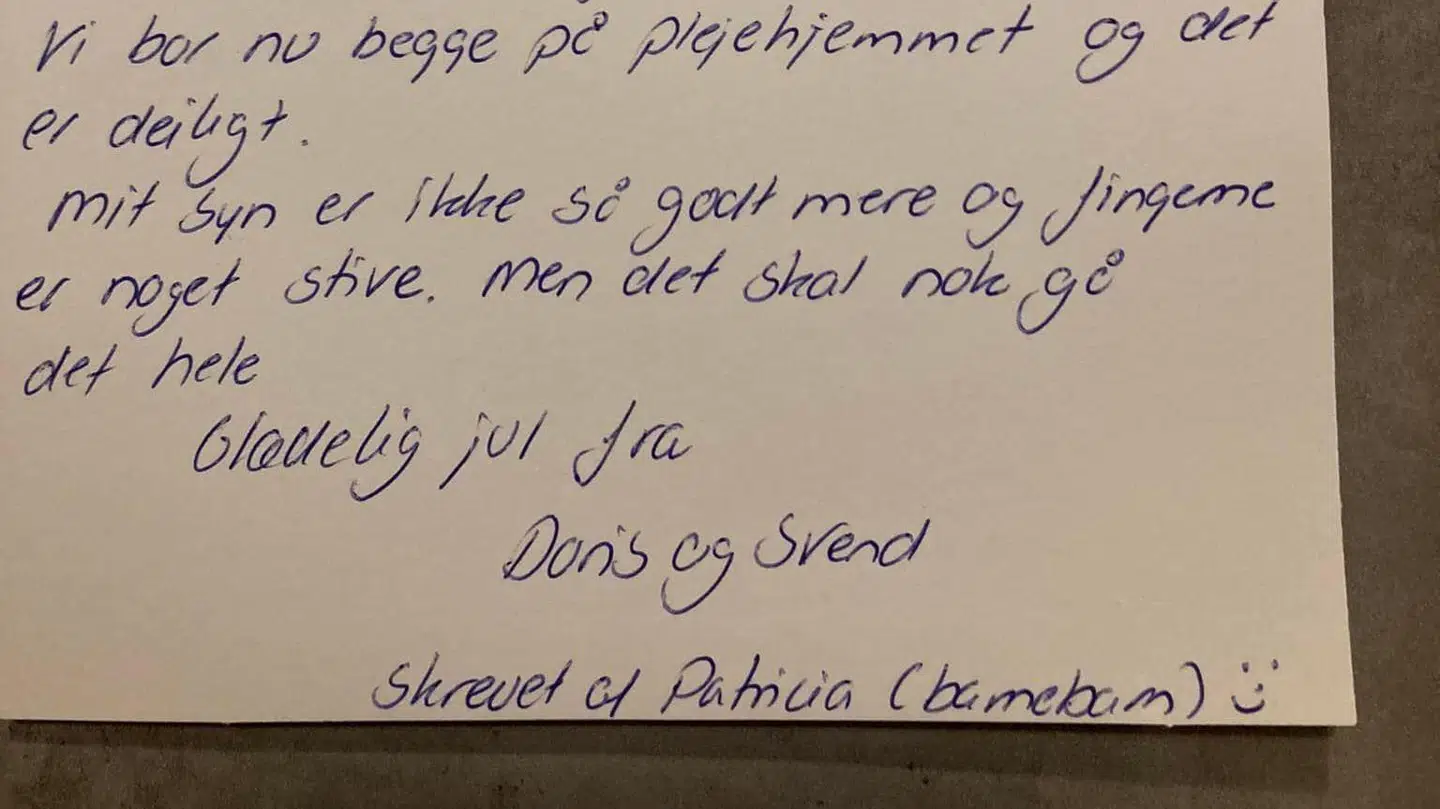 Vi bor nu begge på plejehjemmet og det
er dejligt.
mit syn er ikke så godt mere og fingerne
er noget stive. Men det skal nok gå
det hele
Glædelig jul fra
Doris og Svend
Skrevet af Patricia (barnebarn) :)